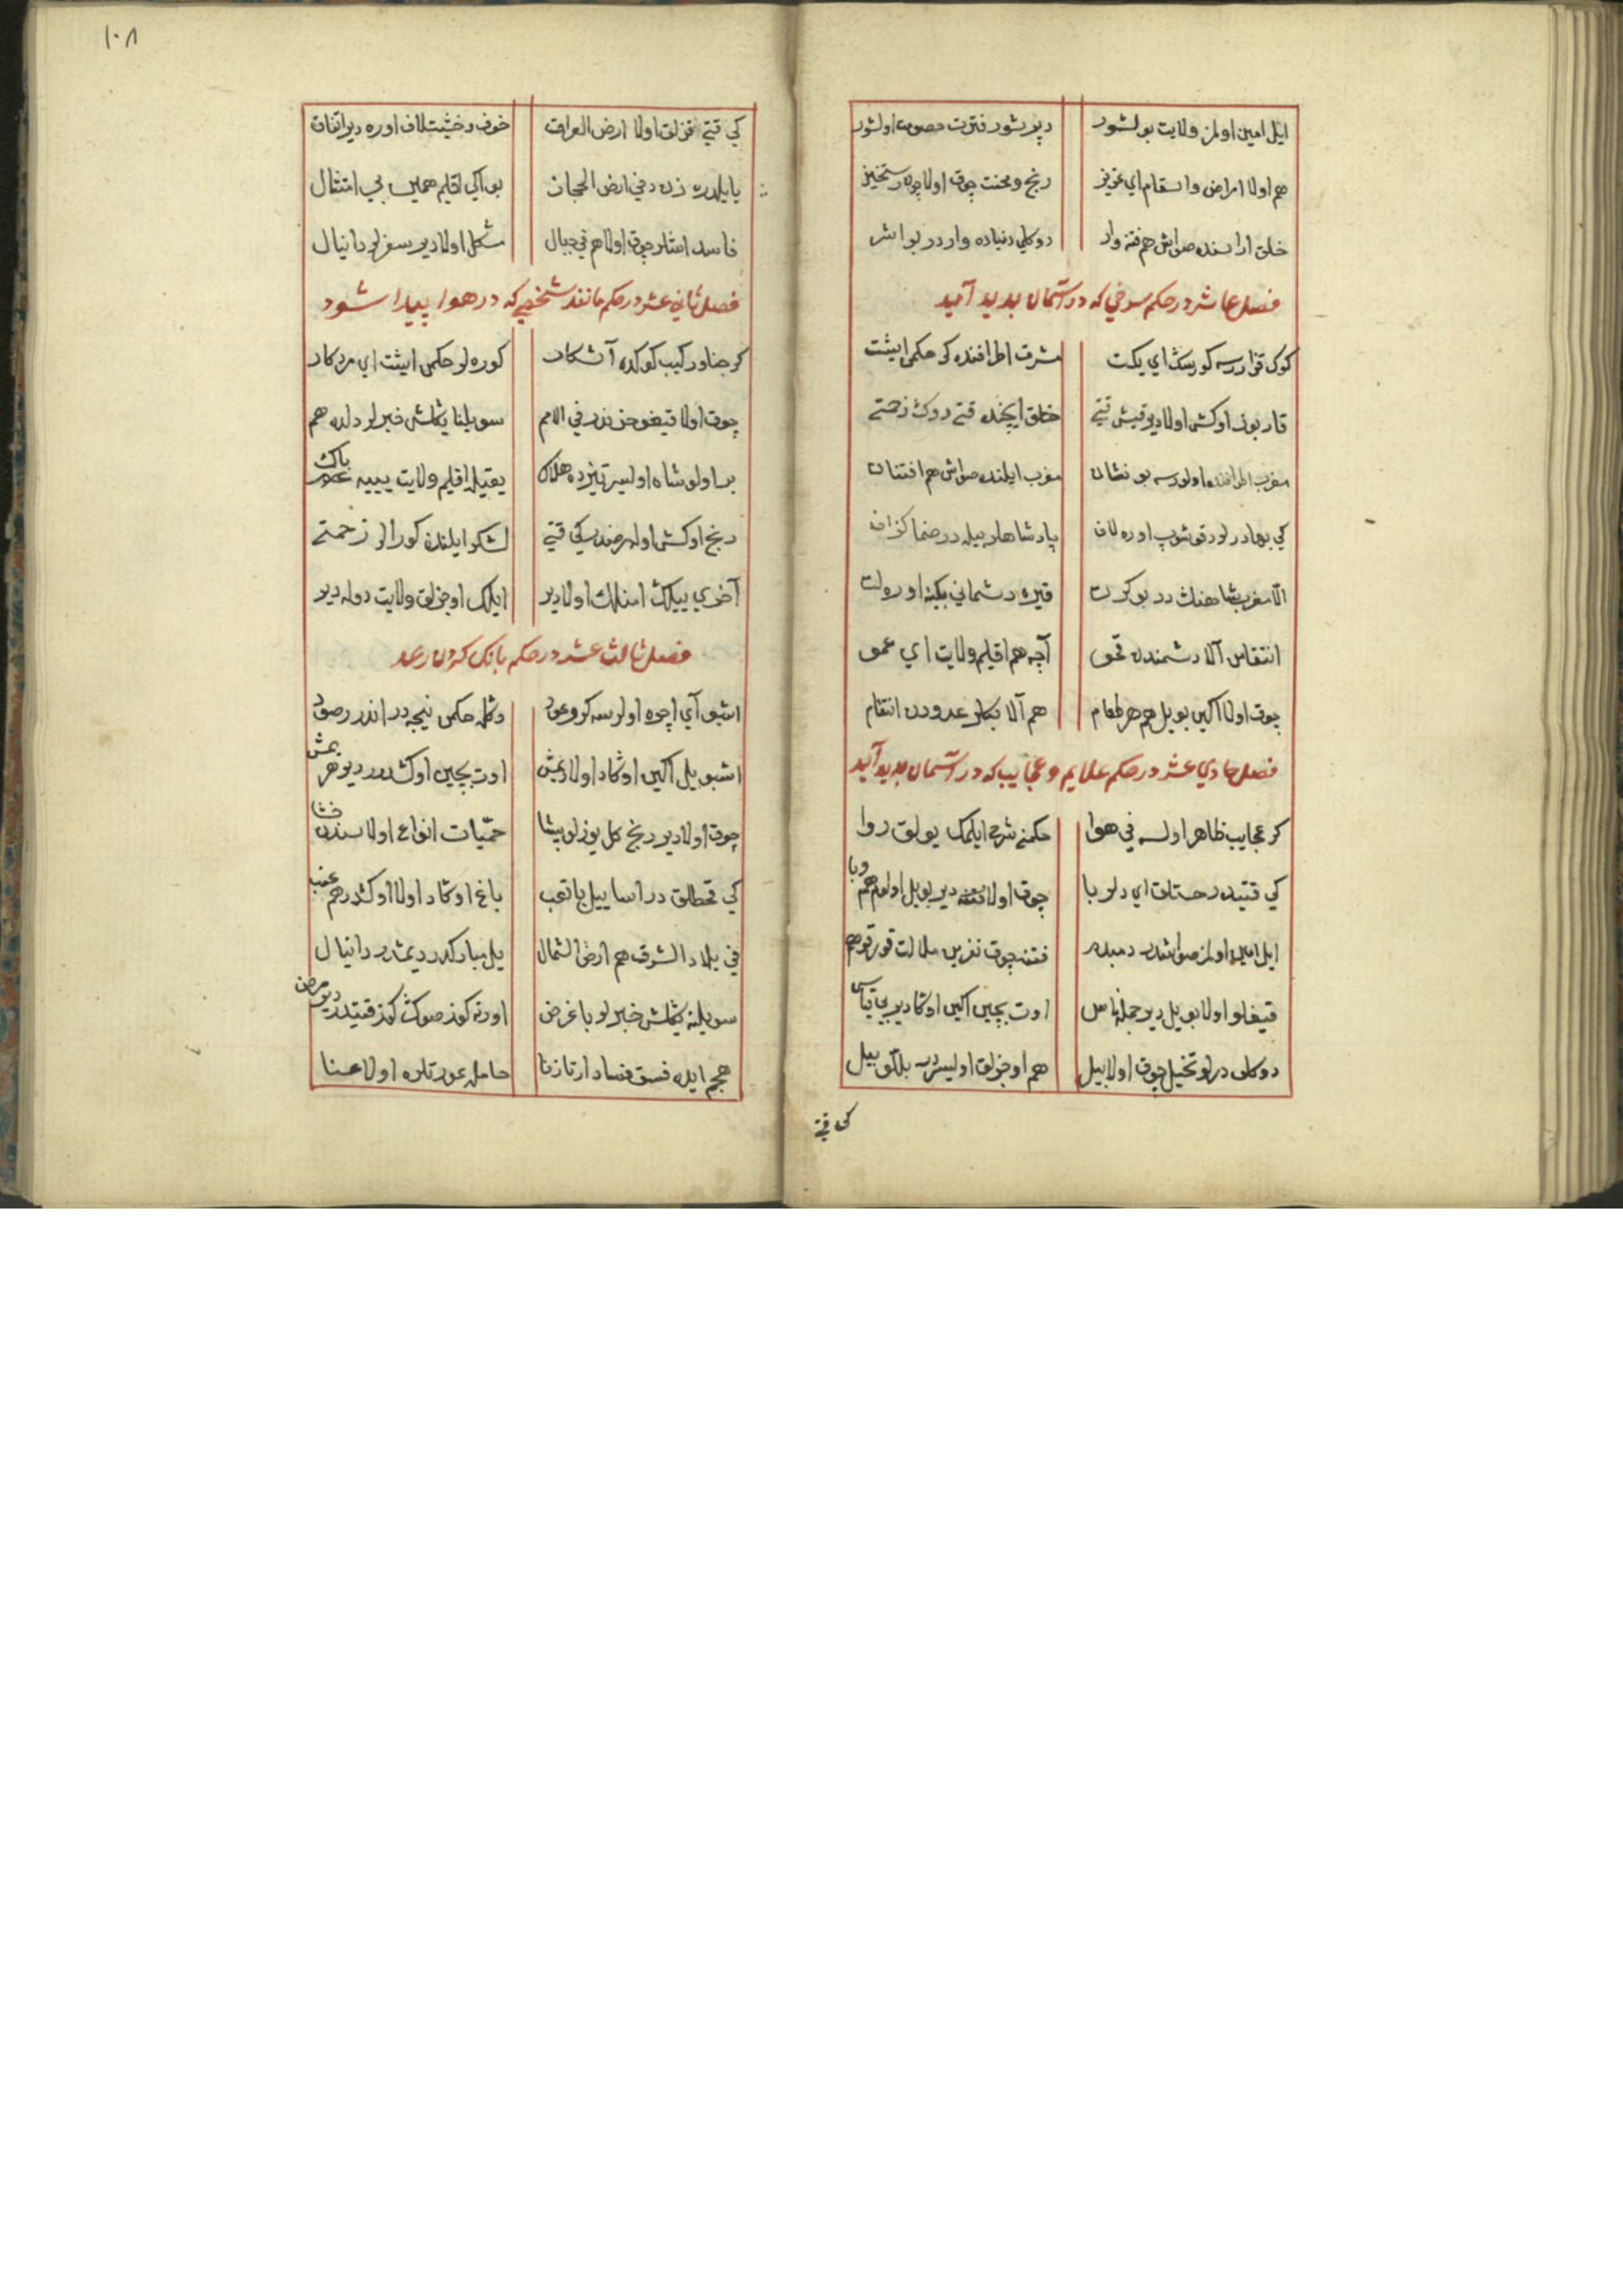 ایل امین اولمز ولایت بولشور دیر شور فترت حصومت اولشور
هم اولا امراض واسقام ای عزیز رنج ومحنت چوق اولا چون رستخیز
خلق اراسنده صواش هم فتنه وار دوکلی دنیاده واردر بو اثر
فصل عاشر در حکم سرخی که در آسمان پدید آمید
کوک قزارسه کورسک ای یکت مشرق اطرافنده کر حکمی ایشت
قار بوز اوکش اولا دیر قیش قتی خلق ایچنده قتی دوک زحمتی
مغرب اطرافنده اولورسه بو نشان مغرب ایلنده صواش هم افتتان
کی بهادرلر دقوشوب اوره لاف پادشاهلر بیله در ضما کزاف
الا مغرب شاهنک در بو کرت قیره دشمانی بکنه اورولت
انتقامن آلا دشمندن تحق آچه هم اقلیم ولایت ای عمو
چوق اولا اکین بو ییل هم هر طعام هم آلا بکلر عدودن انتقام
فصل حادی عشر در حکم علایم وعجایب که در آسمان پدید آید
کر عجایب ظاهر اولسه فی هوا حکمنی شرح ایلمک بولق روا
کی قتیدر خستلق ای دلربا چوق اولا فتنه دیر بو ییل اولوم هم وبا
ایل امین اولمز صواشدر دمبدم فتنه چوق نزین ملالت قورقو هم
قیغلو اولا بو ییل دیر جمله ناس اوت بچین اکین اوکادیر بی قیاس
دوکلی درلو تخیل چوق اولا بیل هم اوجزلق اولیسردر بللو بیل
کی قتی
۱۰۸
کی قتی قزلق اولا ارض العراق خوف وخشیت لاف اوره دیر اتفاق
یاییلدره زن دخی ارض الحجاز بو اکی اقلیم همین بی امتثال
فاسد اشلر چوق اولا هم فی جبال مشکل اولا دیر سفرلر دانیال
فصل ثانی عشر در حکم مانند شخصی که در هوا پیدا شود
کر جناور کیب کوکده آشکار کوره لر حکمن ایشت ای مرد کار
چوق اولا قیغو حزندر فی الامم سویلنا یکلش خبرلر دلده هم
بر اولو شاه اولیسر تیزده هلاک یقیله اقلیم ولایت ییه پاک
رنج اوکش اولا مرضدر کی قتی لشکر ایلندن کورالر زحمتی
آخری ییلک امنلک اولا دیر ایلک اوجزلق ولایت دوله دیر
فصل ثالث عشر در حکم بانک کردن رعد
اشبو آی اچره اولورسه کر وعود دکله حکمن نیجه در اندر رصود
اشبو ییل اکین اوکاد اولا دیمش اوت بچین اوکشدر دیو هر یمش
چوق اولا دیر رنج کل یوزلو بیشا حمیات انواع اولا سندن خشا
کی قحطلق در اسا ییل با تعب باغ اوکاد اولا اوکشدر هم عنب
فی بلاد الشرق هم ارض الشمال ییل مبارکدر دیمشدر دانیال
سویلنه یکلش خبرلر با غرض اورته کوز صوک کوز قتیدر دیر مرض
هجم ایده فسق فساد ارتا زنا حامله عورتلره اولا عنا